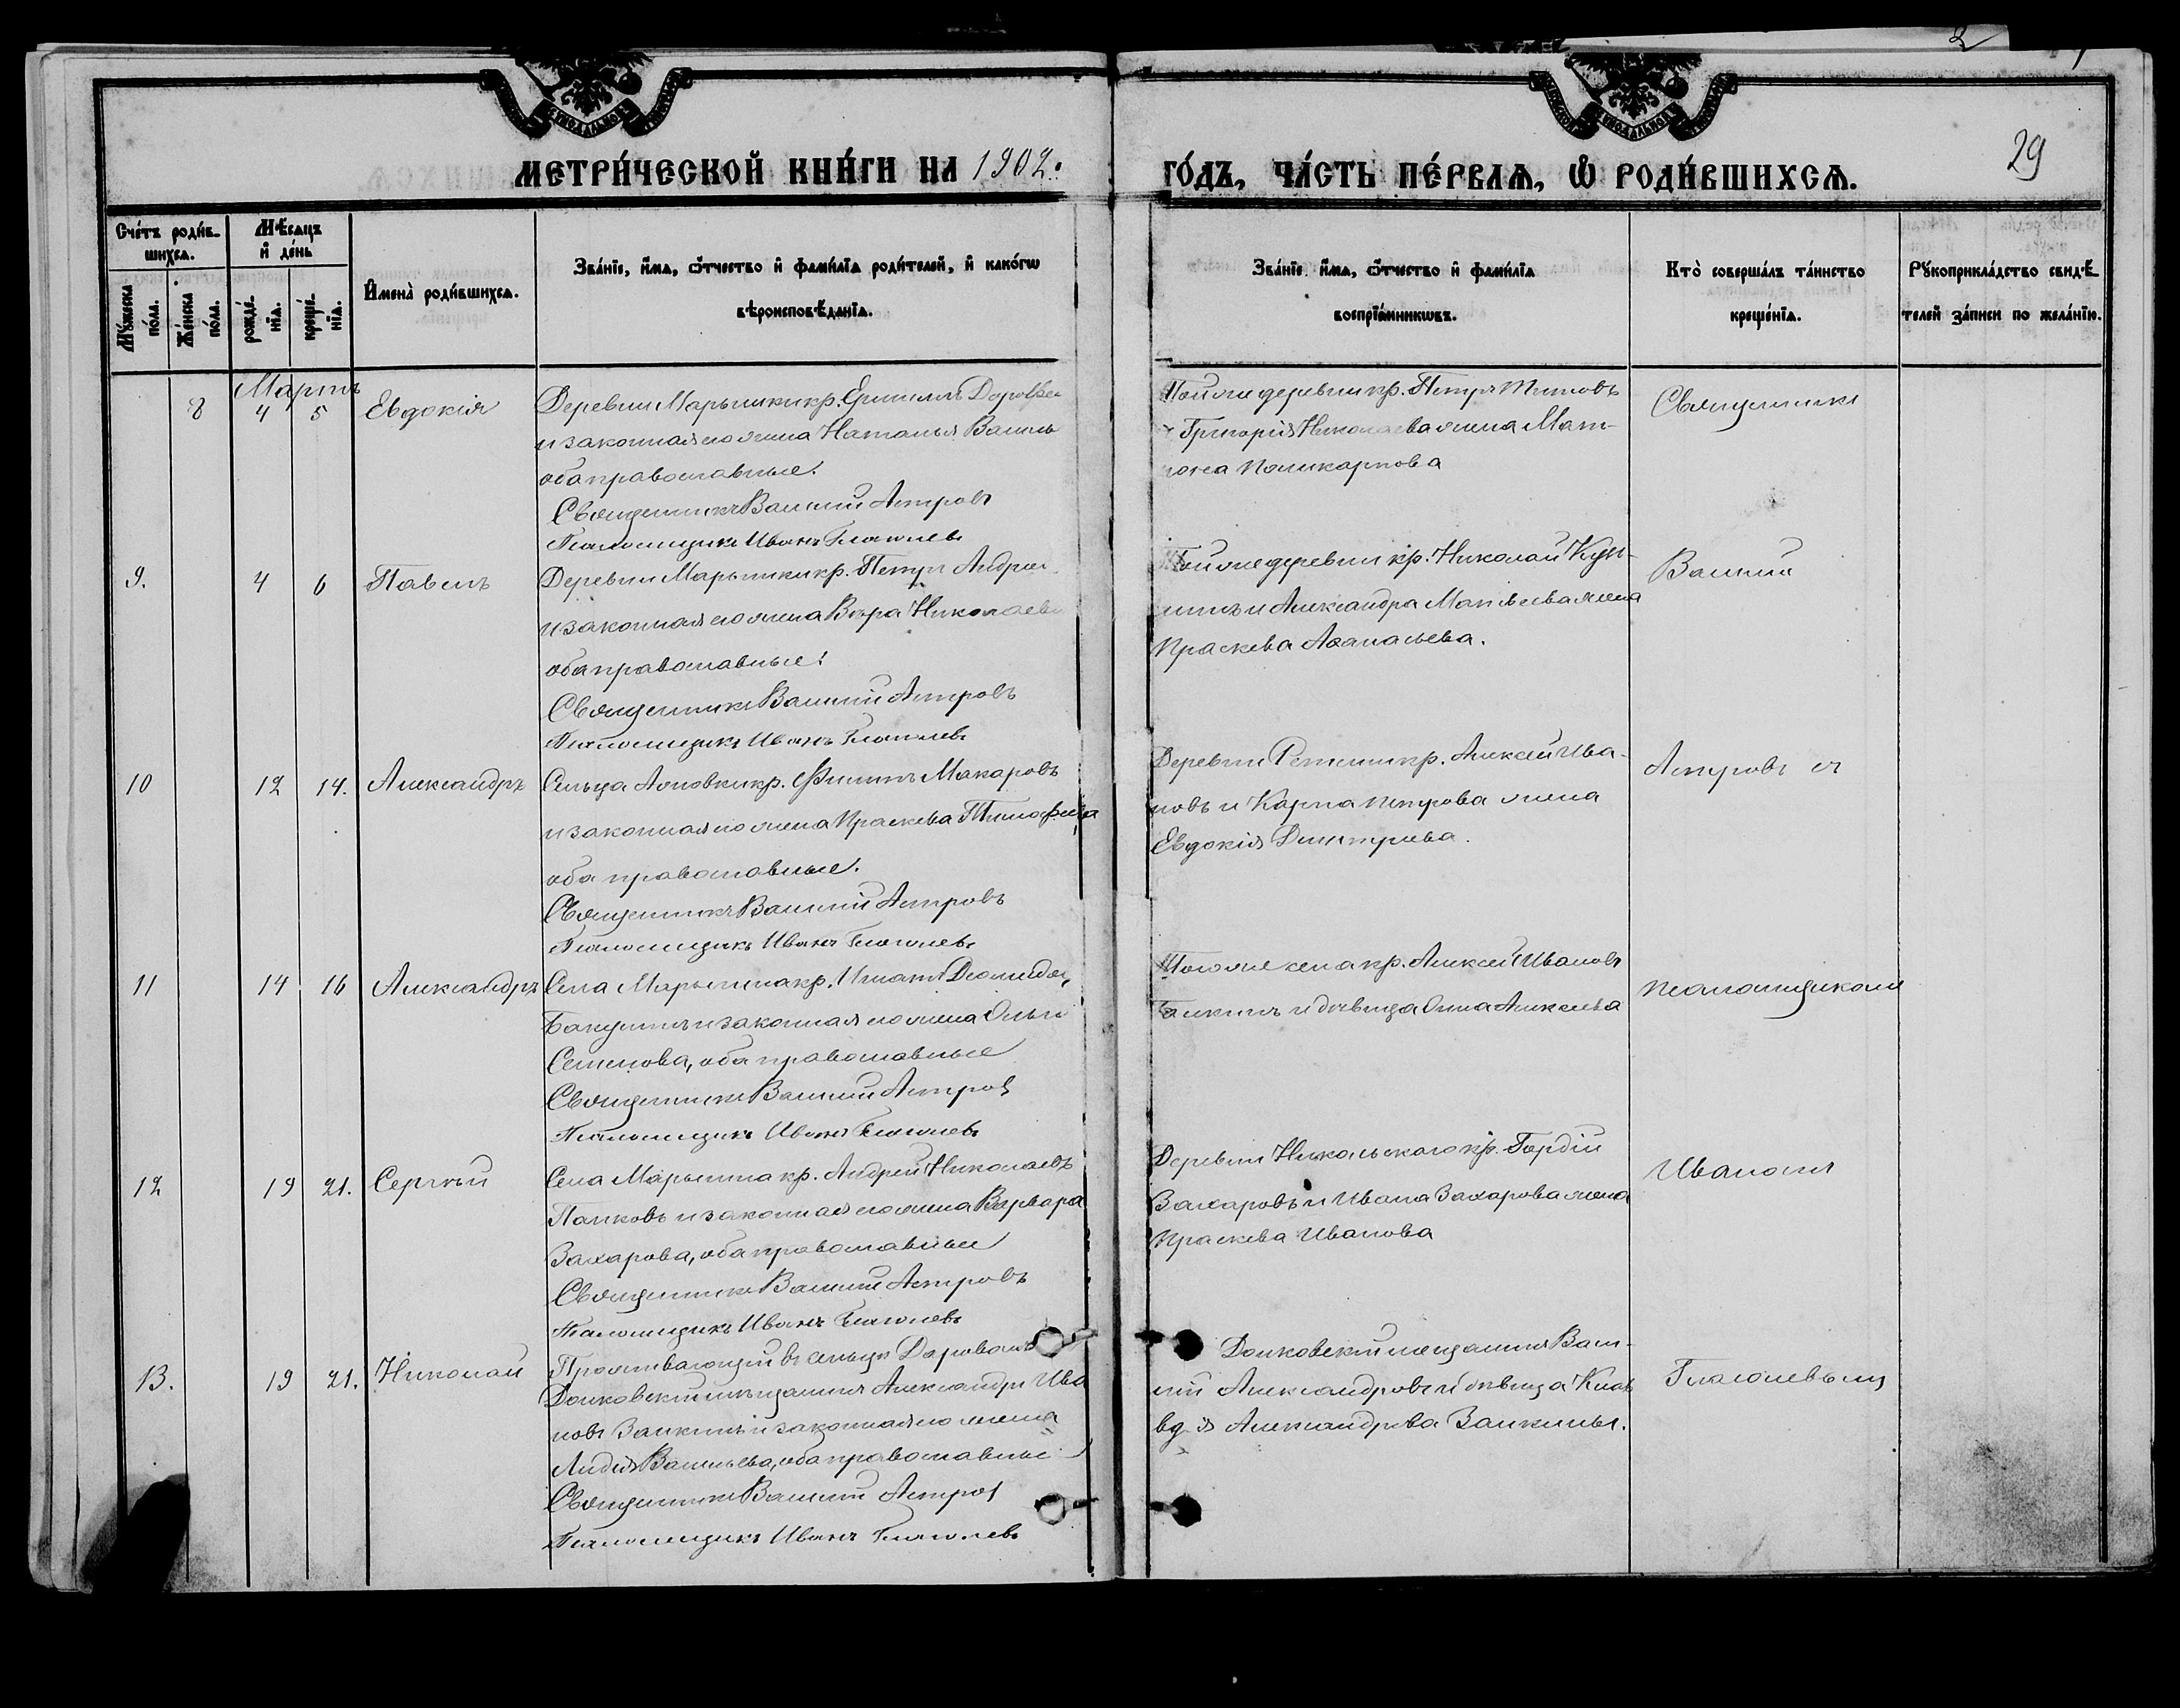 МЕТРИ́ЧЕСКОЙ КНИ́ГИ НА 1902.
ГО́ДЪ, ЧА́СТЬ ПЕ́РВАѦ, Ѡ҆ РОДИ́ВШИХСѦ.
29
Сче́тъ роди́в-
шихсѧ.
Мꙋ́жеска по́ла.
Же́нска по́ла.
Мѣ́сѧцъ
и҆ де́нь
рожде́нїѧ.
креще́нїѧ.
И҆мена̀ роди́вшихсѧ.
Зва́нїе, и҆́мѧ, ѻ҆́тчество и҆ фами́лїѧ роди́телей, и҆ како́гѡ
вѣроисповѣ́данїѧ.
Зва́нїе, и҆́мѧ, ѻ҆́тчество и҆ фами́лїѧ
воспрїе́мникѡвъ.
Кто̀ соверша́лъ та́инство
креще́нїѧ.
Рꙋкоприкла́дство свидѣ́-
телей за́писи по жела́нїю.
Мартъ
8 4 5 Евдокія
Деревни Марьинки кр. Ермилъ Дорофее
и законная его жена Наталья Василь
оба православные.
Священникъ Василій Астровъ
Псаломщикъ Иванъ Глаголевъ
Той же деревни кр. Петръ Титовъ
и Григорія Николаева жена Мат-
рона Поликарпова
Священникъ
9. 4 6 Павелъ
Деревни Марьинки кр. Петръ Андрее
и законная его жена Вѣра Николаева
оба православные.
Священникъ Василій Астровъ
Псаломщикъ Иванъ Глаголевъ
Той же деревни кр. Николай Кузь-
минъ и Александра Матвѣева жена
Праскева Аѳанасьева.
Василій
10 12 14. Александръ
Сельца кр. Филиппъ Макаровъ
и законная его жена Праскева Тимофеева
оба православные.
Священникъ Василій Астровъ
Псаломщикъ Иванъ Глаголевъ
Деревни кр. Алексѣй Ива-
новъ и Карпа Петрова жена
Евдокія Димитріева.
Астровъ съ
11 14 16 Александръ
Села Марьина кр. Игнатъ Діомидов
и законная его жена Ольга
Семенова, оба православные
Священникъ Василій Астровъ
Псаломщикъ Иванъ Глаголевъ
Того же села кр. Алексѣй Ивановъ
и дѣвица Анна Алексѣева
псаломщикомъ
12 19 21. Сергѣй
Села Марьина кр. Андрей Николаевъ
Панковъ и законная его жена Варвара
Захарова, оба православные
Священникъ Василій Астровъ
Псаломщикъ Иванъ Глаголевъ
Деревни Никольскаго кр. Гордій
Захаровъ и Ивана Захарова жена
Праскева Иванова
Иваномъ
13. 19 21. Николай
Проживающій въ сельцѣ
Донковскій мѣщанинъ Александръ Ива
новъ Заикинъ и законная его жена
Лидія Васильева, оба православные
Священникъ Василій Астровъ
Псаломщикъ Иванъ Глаголевъ
Донковскій мѣщанинъ Васи-
лій Александровъ и дѣвица Клав
вдія Александрова Заикины.
Глаголевымъ